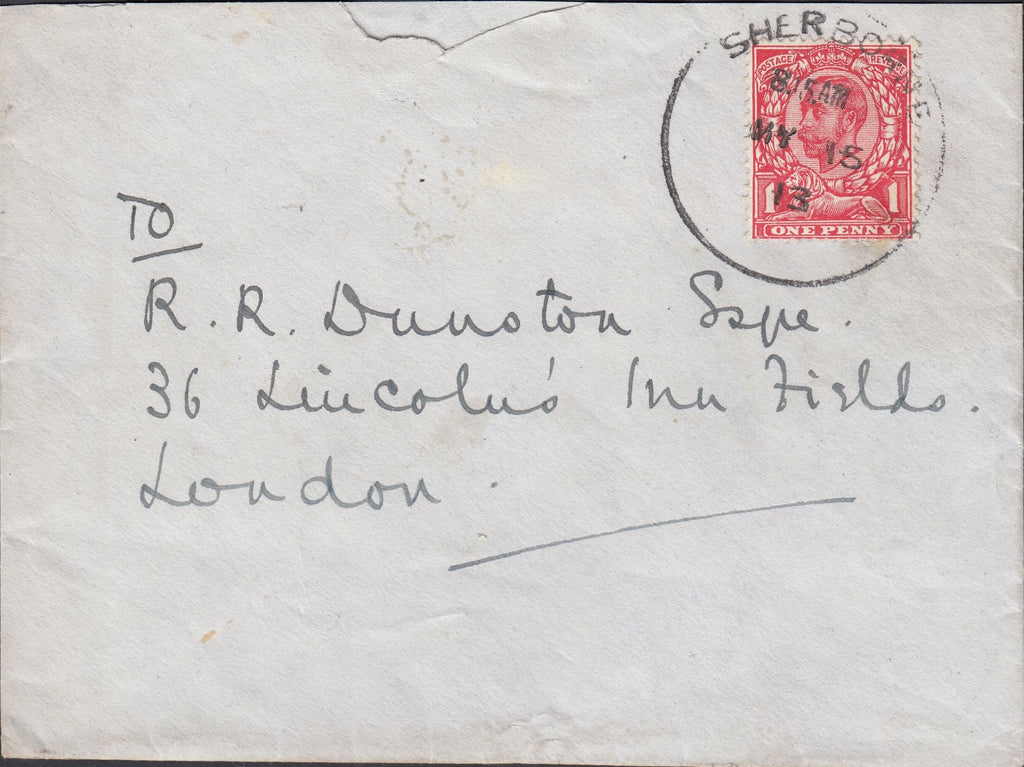 SHERBORNE
POSTAGE REVENUE
8.15 AM
MY 15
13
1 1
ONE PENNY
TO
R. R. Dunston Esqre.
36 Lincoln's Inn Fields.
London.